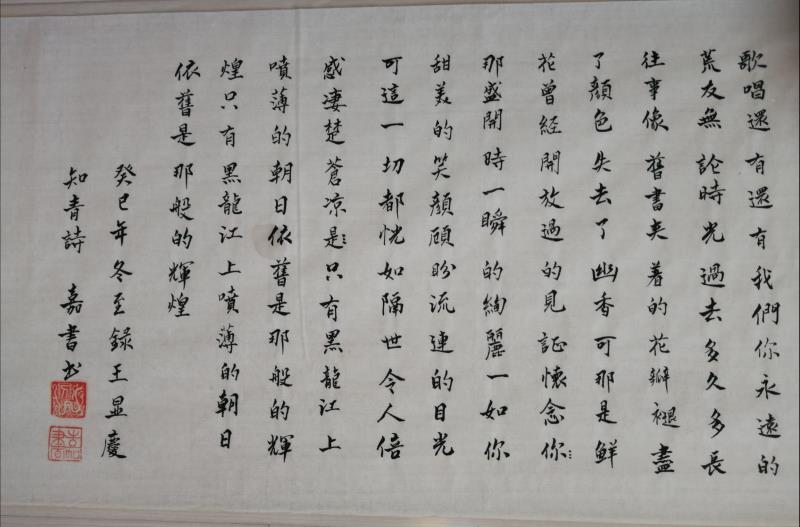 歌唱還有還有我們你永遠的
荒友無論時光過去多久多長
往事像舊書夹着的花瓣褪盡
了顏色失去了幽香可那是鮮
花曾經開放過的見証懷念你⺀
那盛開時一瞬的絢麗一如你
甜美的笑顏顧盼流連的目光
可這一切都恍如隔世令人倍
感凄楚蒼凉是⺀只有黑龍江上
噴薄的朝日依舊是那般的輝
煌只有黑龍江上噴薄的朝日
依舊是那般的輝煌
癸巳年冬至錄王显慶
知青詩 嘉書书